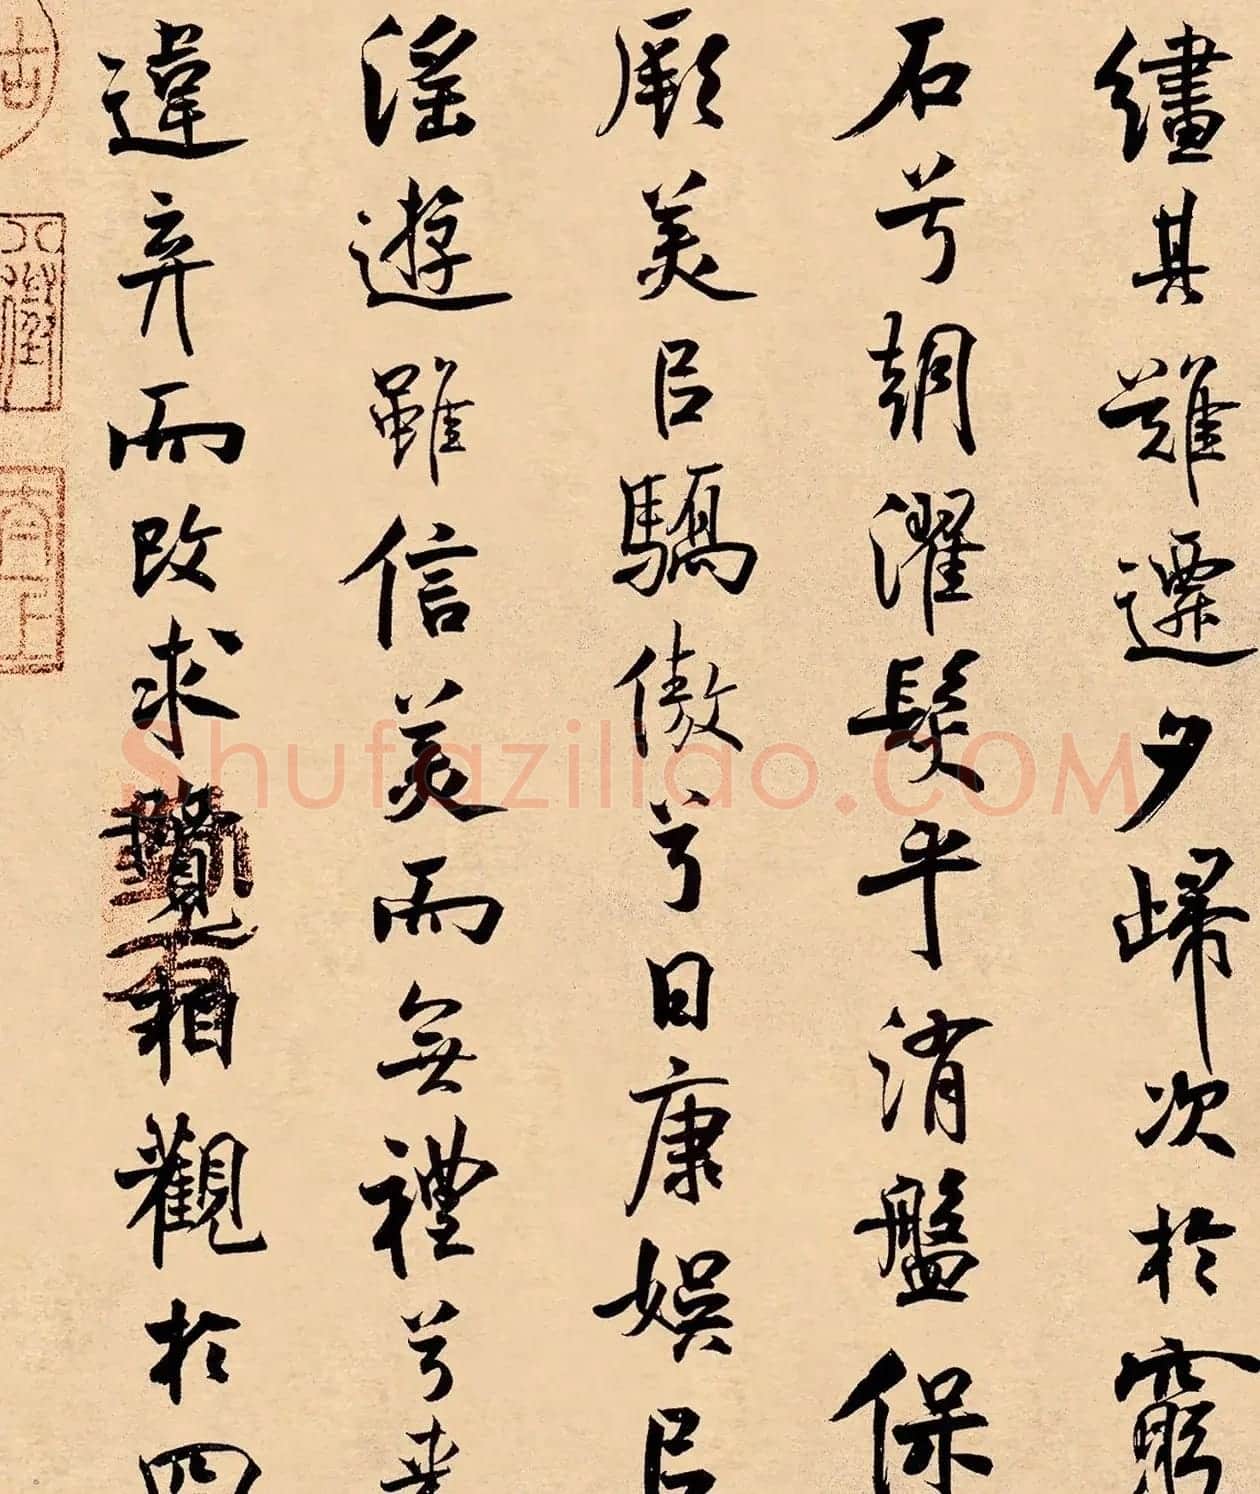 繣其難遷夕歸次於窮
石兮朝濯髮乎洧盤保
厥美㠯驕傲兮日康娛㠯
滛遊雖信美而無禮兮來
違弃而改求覽相觀於四
Shufaziliao.COM